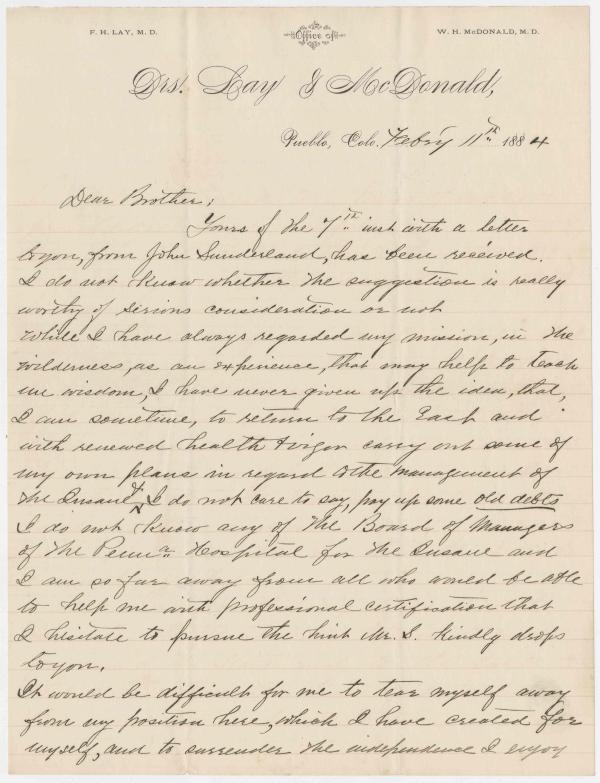 F. H. LAY, M. D.
Office of
W. H. McDONALD, M. D.
Drs. Lay & McDonald,
Pueblo, Colo. Feb'y 11th 1884
Dear Brother;
Yours of the 7th inst with a letter
to you, from John Sunderland, has been received.
I do not know whether the suggestion is really
worthy of serious consideration or not
While I have always regarded my mission, in the
wilderness, as an experience, that may help to teach
me wisdom, I have never given up the idea, that,
I am sometime, to return to the East and
with renewed health & vigor carry out some of
my own plans in regard to the management of
the Insane &, I do not care to say, pay up some old debts
I do not know any of the Board of Managers
of the Penna. Hospital for the Insane and
I am so far away from all who would be able
to help me with professional certification that
I hesitate to pursue the hint Mr. S. kindly drops
to you.
It would be difficult for me to tear myself away
from my position here, which I have created for
myself, and to surrender the independence I enjoy